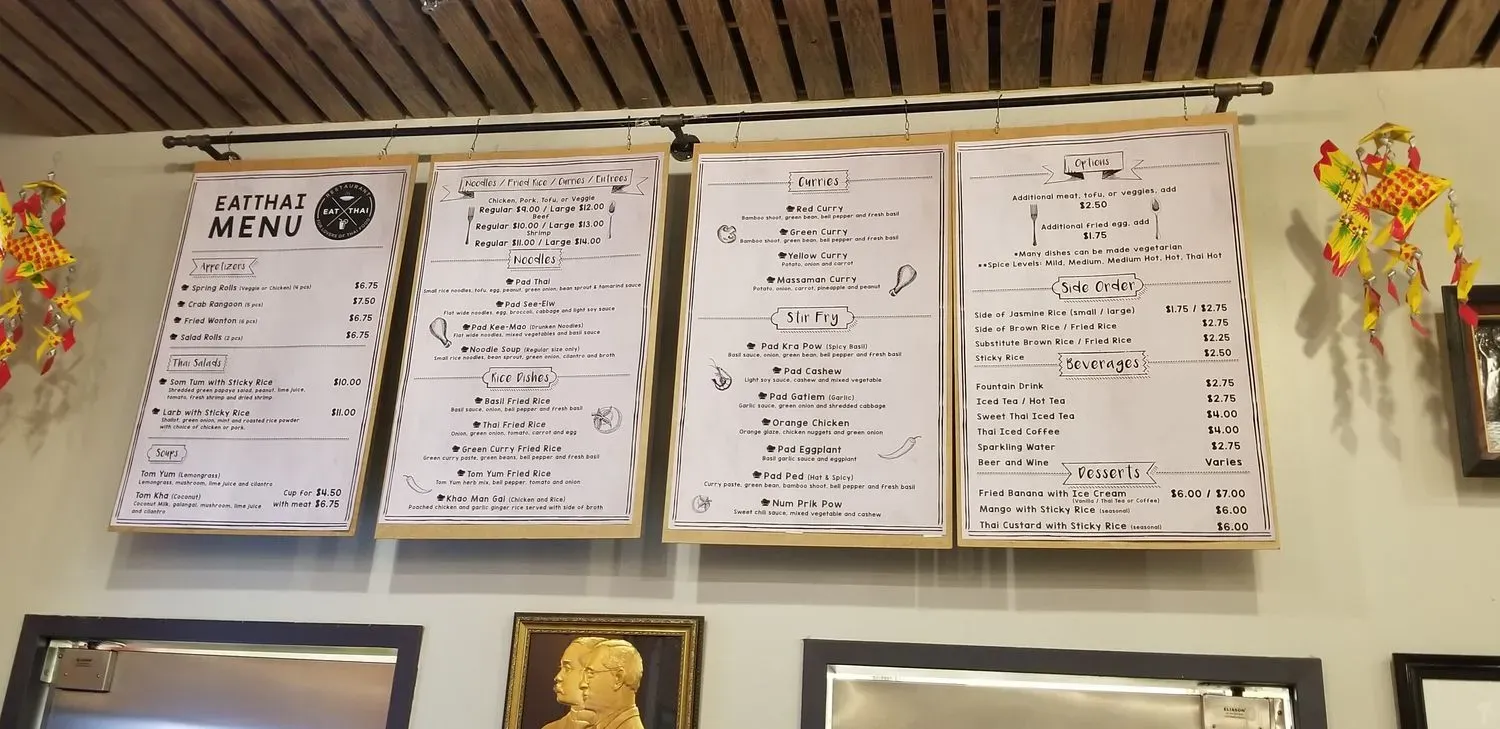 EATTHAI
MENU
RESTAURANT
EAT THAI
FOR LOVERS OF THAI FOOD
Appetizers
Spring Rolls (Veggie or Chicken) (4 pcs) $6.75
Crab Rangoon (5 pcs) $7.50
Fried Wonton (6 pcs) $6.75
Salad Rolls (2 pcs) $6.75
Thai Salads
Som Tum with Sticky Rice $10.00
Shredded green papaya salad, peanut, lime juice,
tomato, fresh shrimp and dried shrimp
Larb with Sticky Rice $11.00
Shallot, green onion, mint and roasted rice powder
with choice of chicken or pork.
Soups
Tom Yum (Lemongrass)
Lemongrass, mushroom, lime juice and cilantro
Tom Kha (Coconut)
Coconut Milk, galangal, mushroom, lime juice
and cilantro
Cup for $4.50
with meat $6.75
Noodles / Fried Rice / Curries / Entrees
Chicken, Pork, Tofu, or Veggie
Regular $9.00 / Large $12.00
Beef
Regular $10.00 / Large $13.00
Shrimp
Regular $11.00 / Large $14.00
Noodles
Pad Thai
Small rice noodles, tofu, egg, peanut, green onion, bean sprout & tamarind sauce
Pad See-Eiw
Flat wide noodles, egg, broccoli, cabbage and light soy sauce
Pad Kee-Mao (Drunken Noodles)
Flat wide noodles, mixed vegetables and basil sauce
Noodle Soup (Regular size only)
Small rice noodles, bean sprout, green onion, cilantro and broth
Rice Dishes
Basil Fried Rice
Basil sauce, onion, bell pepper and fresh basil
Thai Fried Rice
Onion, green onion, tomato, carrot and egg
Green Curry Fried Rice
Green curry paste, green beans, bell pepper and fresh basil
Tom Yum Fried Rice
Tom Yum herb mix, bell pepper, tomato and onion
Khao Man Gai (Chicken and Rice)
Poached chicken and garlic ginger rice served with side of broth
Curries
Red Curry
Bamboo shoot, green bean, bell pepper and fresh basil
Green Curry
Bamboo shoot, green bean, bell pepper and fresh basil
Yellow Curry
Potato, onion and carrot
Massaman Curry
Potato, onion, carrot, pineapple and peanut
Stir Fry
Pad Kra Pow (Spicy Basil)
Basil sauce, onion, green bean, bell pepper and fresh basil
Pad Cashew
Light soy sauce, cashew and mixed vegetable
Pad Gatiem (Garlic)
Garlic sauce, green onion and shredded cabbage
Orange Chicken
Orange glaze, chicken nuggets and green onion
Pad Eggplant
Basil garlic sauce and eggplant
Pad Ped (Hot & Spicy)
Curry paste, green bean, bamboo shoot, bell pepper and fresh basil
Num Prik Pow
Sweet chili sauce, mixed vegetable and cashew
Options
Additional meat, tofu, or veggies, add
$2.50
Additional fried egg, add
$1.75
*Many dishes can be made vegetarian
**Spice Levels: Mild, Medium, Medium Hot, Hot, Thai Hot
Side Order
Side of Jasmine Rice (small / large) $1.75 / $2.75
Side of Brown Rice / Fried Rice $2.75
Substitute Brown Rice / Fried Rice $2.25
Sticky Rice $2.50
Beverages
Fountain Drink $2.75
Iced Tea / Hot Tea $2.75
Sweet Thai Iced Tea $4.00
Thai Iced Coffee $4.00
Sparkling Water $2.75
Beer and Wine Varies
Desserts
Fried Banana with Ice Cream $6.00 / $7.00
(Vanilla / Thai Tea or Coffee)
Mango with Sticky Rice (seasonal) $6.00
Thai Custard with Sticky Rice (seasonal) $6.00
ELIASON
ELIASON